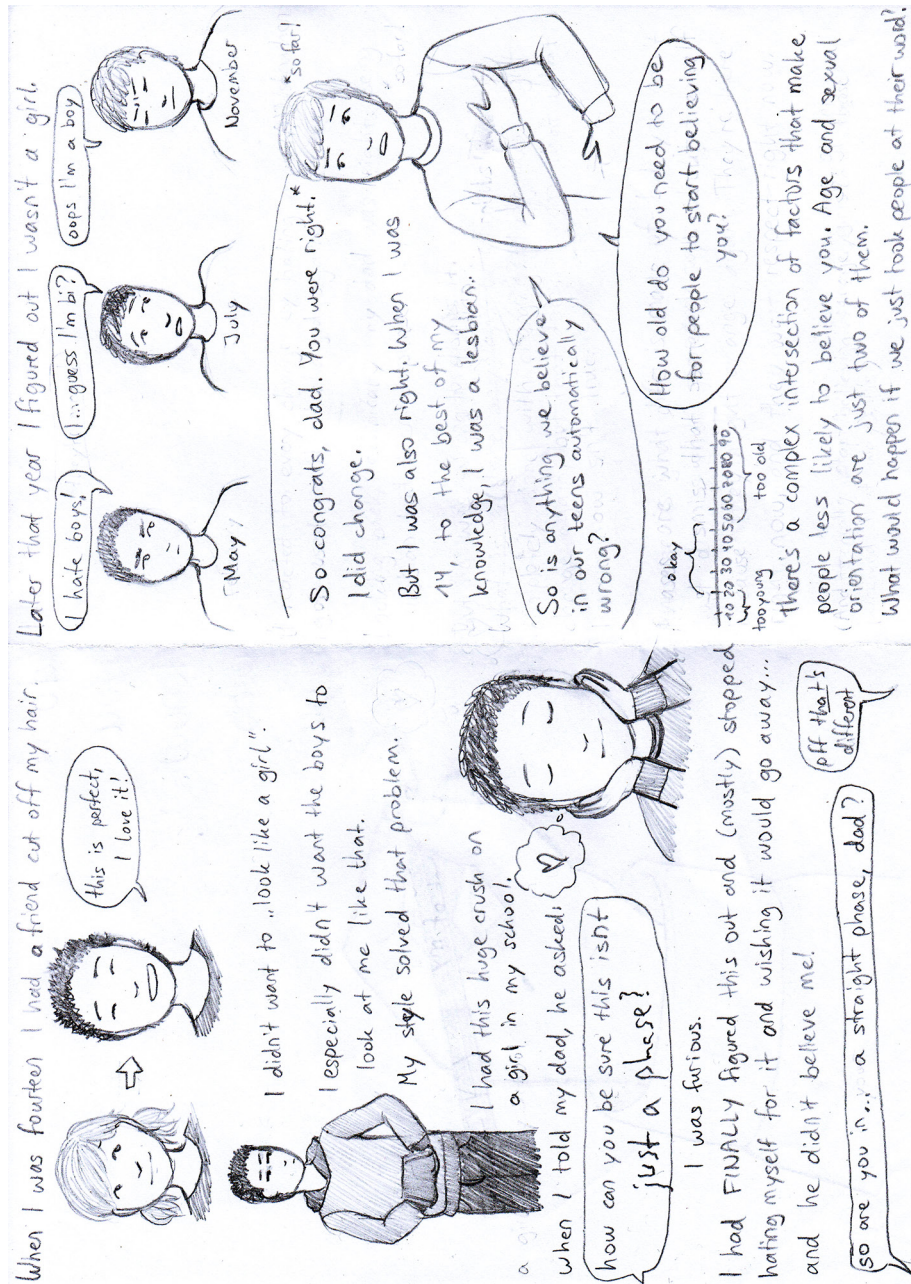 When I was fourteen I had a friend cut off my hair.
this is perfect,
I love it!
I didn't want to „look like a girl".
I especially didn't want the boys to
look at me like that.
My style solved that problem.
I had this huge crush on
a girl in my school.
When I told my dad, he asked:
how can you be sure this isn't
just a phase?
I was furious.
I had FINALLY figured this out and (mostly) stopped
hating myself for it and wishing it would go away...
and he didn't believe me!
so are you in... a straight phase, dad?
pff that's
different
Later that year I figured out I wasn't a girl.
I hate boys!
May
I...guess I'm bi?
July
oops I'm a boy
November
So congrats, dad. You were right.*
I did change.
*so far!
But I was also right. When I was
14, to the best of my
knowledge, I was a lesbian.
So is anything we believe
in our teens automatically
wrong?
How old do you need to be
for people to start believing
you?
okay
10 20 30 40 50 60 70 80 90
too young
too old
there's a complex intersection of factors that make
people less likely to believe you. Age and sexual
orientation are just two of them.
What would happen if we just took people at their word?